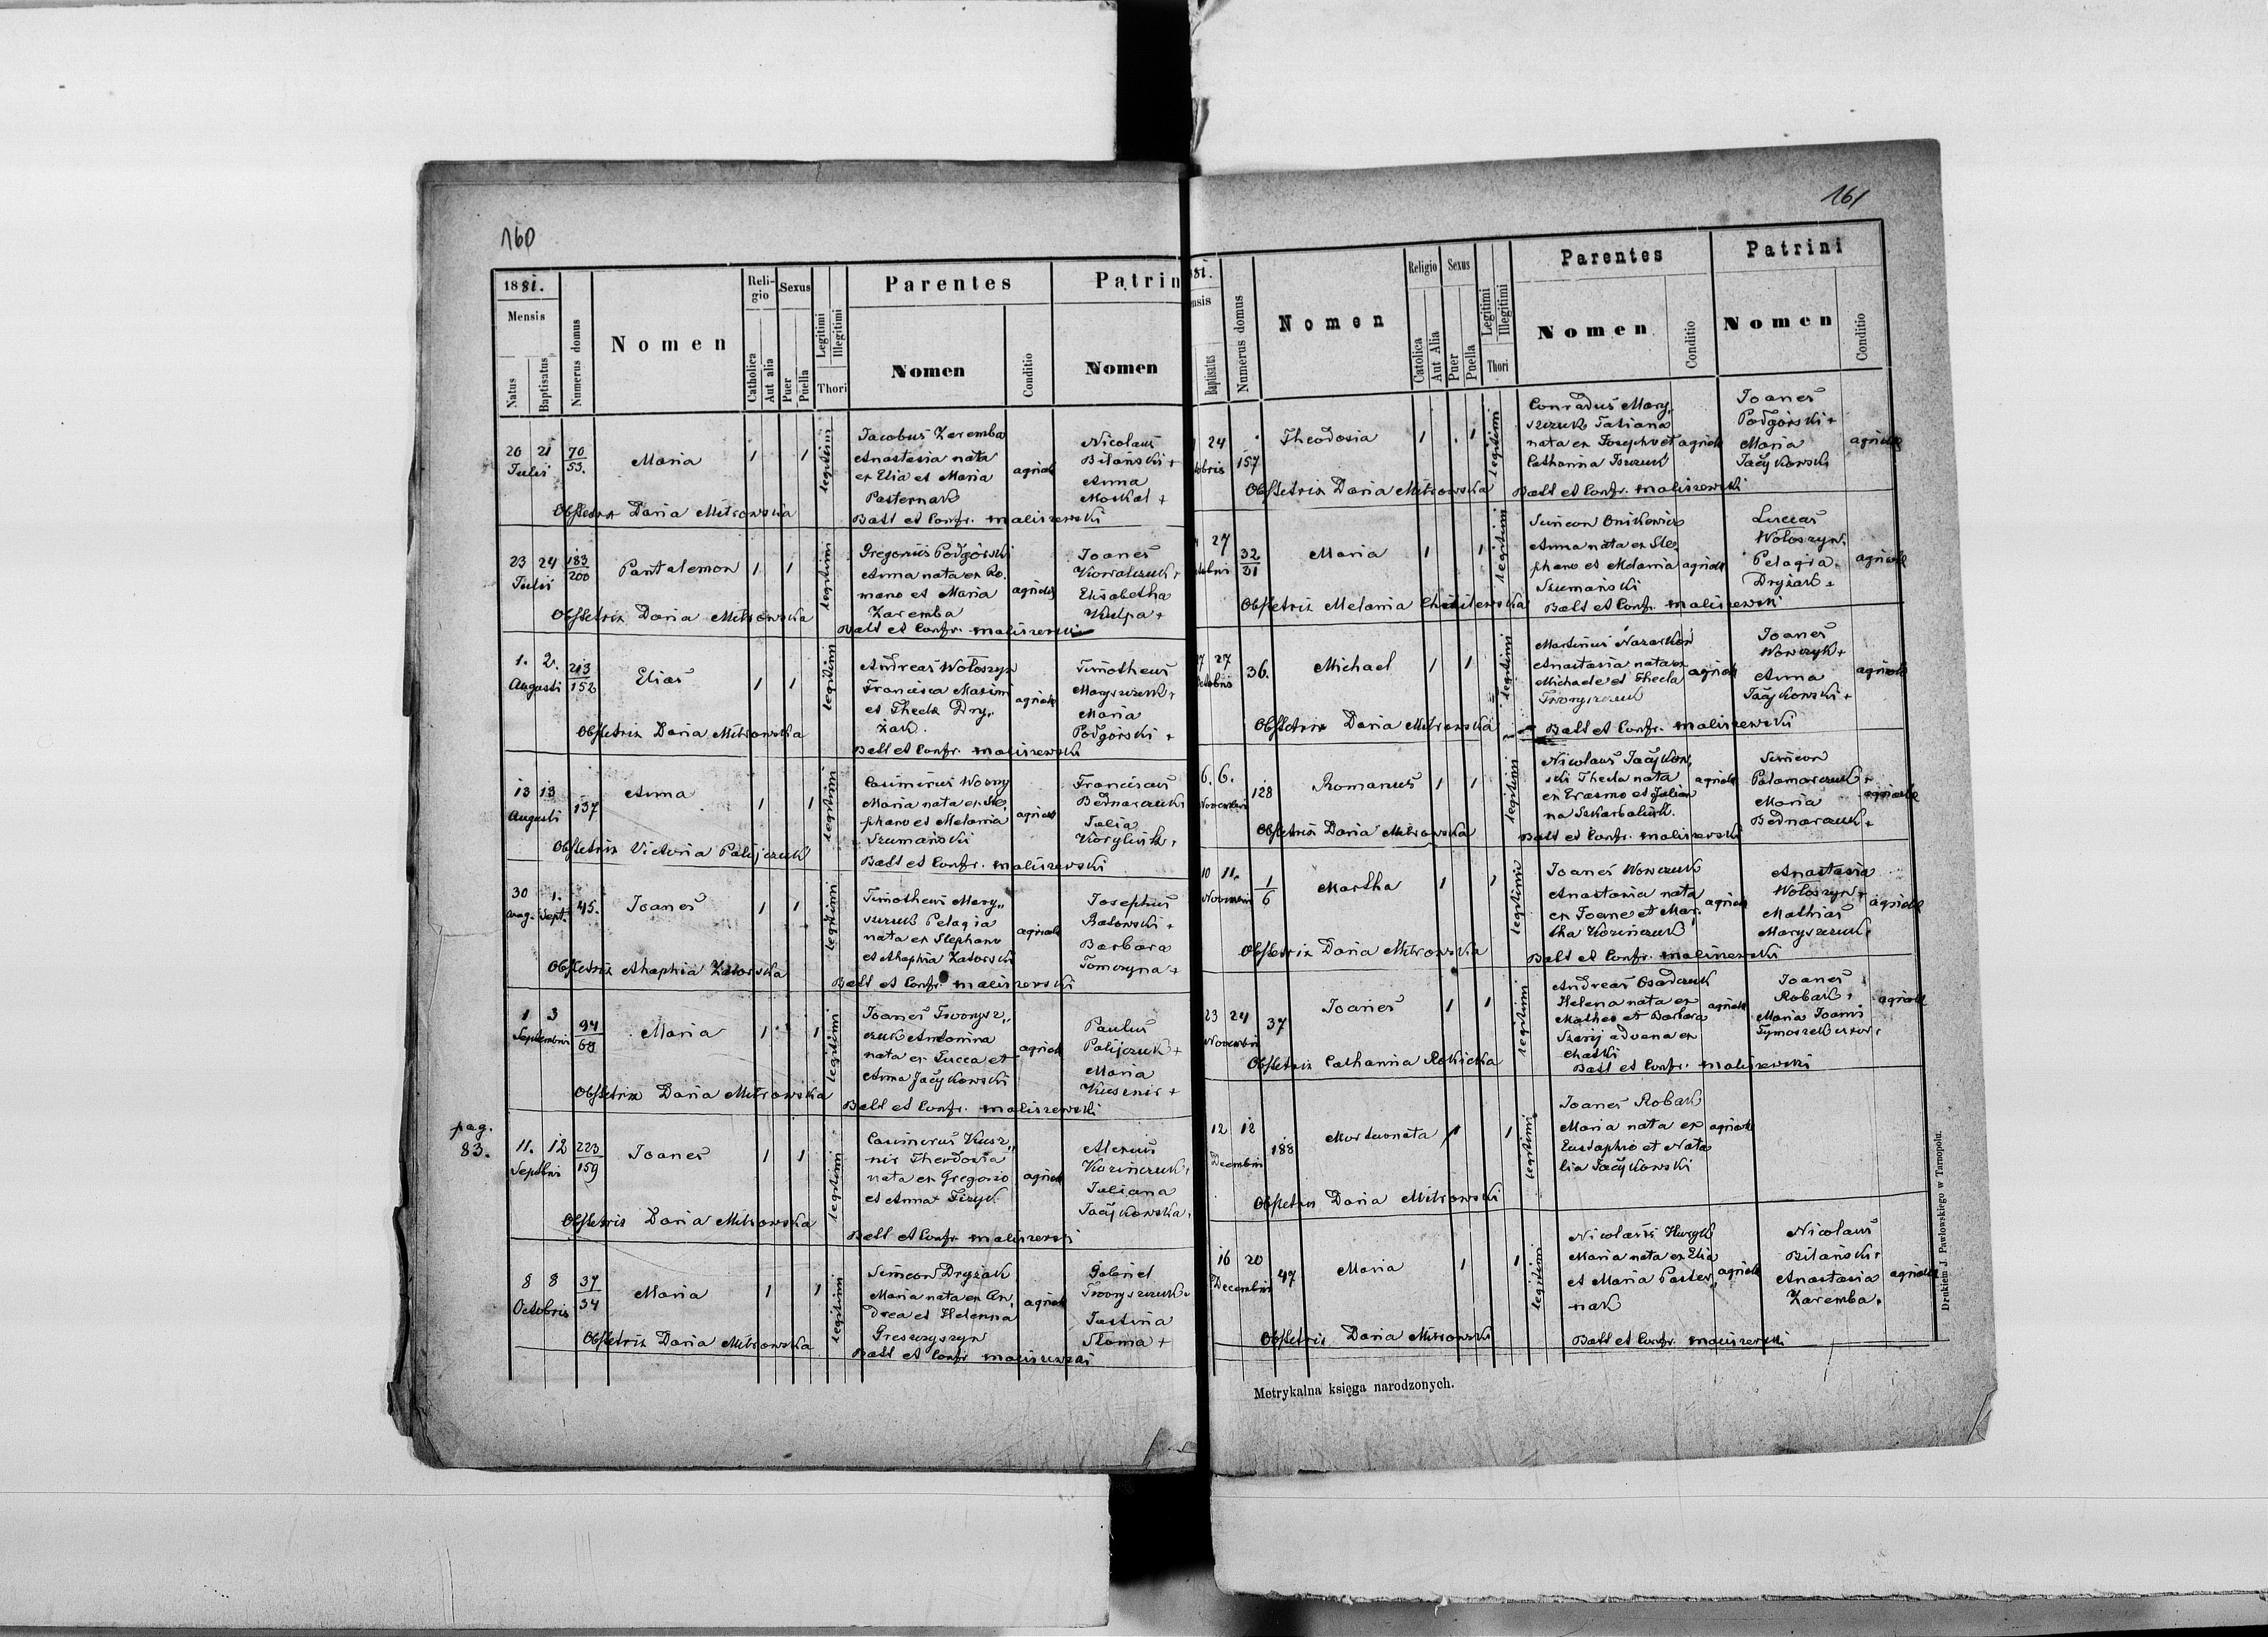 160
1881.
Mensis
Natus
Baptisatus
Numerus domus
Nomen
Reli-
gio
Catholica
Aut alia
Sexus
Puer
Puella
Legitimi
Illegitimi
Thori
Parentes
Nomen
Conditio
Patrin
Nomen
20 21 70
53.
Julii
Maria
1 1
legitimi
Jacobus Zaremba
Anastasia nata
ex Elia et Maria
Pasternak
agricola
Nicolaus
Bilański +
Anna
Moskal +
Obstetrix Daria Mitrowska
Bapt et Confr. Maliszewski
23 24 183
200
Julii
Pantalemon
1 1
legitimi
Gregorius Podgórski
Anna nata ex Ro-
mano et Maria
Zaremba
agricola
Joanes
Kowalczuk +
Elisabetha
Kulpa +
Obstetrix Daria Mitrowska
Bapt et Confr. Maliszewski
1. 2. 213
152
Augusti
Elias
1 1
legitimi
Andreas Wołoszyn
Francisca Maxim
et Thecla Dry,
żak.
agricola
Timotheus
Maryszczuk +
Maria
Podgórski +
Obstetrix Daria Mitrowska
Bapt et Confr. Maliszewski
13 13 137
Augusti
Anna
1 1
legitimi
Casimirus Wozny
Maria nata ex Ste,
phano et Melania
Szumański
agricola
Franciscus
Bednarczuk
Julia
Obstetrix Victoria Palijczuk
Bapt et Confr. Maliszewski
30 1. 45.
Aug. Sept.
Joanes
1 1
legitimi
Timotheus Mary,,
szczuk Pelagia
nata ex Stephano
et Ahaphia Zatorski
agricola
Josephus
Ratowski +
Barbara
Tomczyna +
Obstetrix Ahaphia Zatorska
Bapt et Confr. Maliszewski
1 3 94
69
Septembris
Maria
1 1
legitimi
Joanes Tworysz,,
czuk Antonina
nata ex Lucca et
Anna Jacykowski
agricola
Paulus
Palijczuk +
Maria
Kusznir +
Obstetrix Daria Mitrowska
Bapt et Confr. Maliszewski
pag.
83.
11. 12 223
159
Septbris
Joanes
1 1
legitimi
Casimirus Kusz,,
nir Theodosia
nata ex Gregorio
et Anna Fizyk
agricola
Alexius
Kozińczuk +
Juliana
Jacykowska +
Obstetrix Daria Mitrowska
Bapt et Confr. Maliszewski
8 8 37
34
Octobris
Maria
1 1
legitimi
Simeon Dryżak
Maria nata ex An,
drea et Helenna
Greszczyszyn
agricola
Gabriel
Tworyszczuk +
Justina
Słoma +
Obstetrix Daria Mitrowska
Bapt et Confr. Maliszewski
161
81.
nsis
Baptisatus
Numerus domus
Nomen
Religio
Catolica
Aut Alia
Sexus
Puer
Puella
Legitimi
Illegitimi
Thori
Parentes
Nomen
Conditio
Patrini
Nomen
Conditio
24 157
obris
Theodosia
1 1
legitimi
Conradus Mary,
szczuk Tatiana
nata ex Josepho et
Catharina
agricola
Joanes
Podgórski +
Maria
Jacykowski
agricola
Obstetrix Daria Mitrowska
Bapt et Confr. Maliszewski
27 32
31
Maria
1 1
legitimi
Simeon Onikowicz
Anna nata ex Ste,
phano et Melania
Szumański
agricola
Luccas
Wołoszyn +
Pelagia
Dryżak +
agricola
Obstetrix Melania
Bapt et Confr. Maliszewski
27 27 36.
Octobris
Michael
1 1
legitimi
Martinus
Anastasia nata ex
Michaele et Thecla
Tworyszczuk
agricola
Joanes
Wowczyk +
Anna
Jacykowski +
agricola
Obstetrix Daria Mitrowska
Bapt et Confr. Maliszewski
6. 6. 128
Novembris
Romanus
1 1
legitimi
Nicolaus Jacykow,
ski Thecla nata
ex Erasmo et Julian
na
agricola
Simeon
Palamarczuk +
Maria
Bednarczuk +
agricola
Obstetrix Daria Mitrowska
Bapt et Confr. Maliszewski
10 11. 1
6
Martha
1 1
legitimi
Joanes Wowczuk
Anastasia nata
ex Joane et Mar,
tha Kozińczuk
agricola
Anastasia
Wołoszyn +
Mathias
Maryszczuk +
agricola
Obstetrix Daria Mitrowska
Bapt et Confr. Maliszewski
23 24 37
Novembris
Joanes
1 1
legitimi
Andreas Osadczuk
Helena nata ex
Matheo et Barbara
Szary advena ex
Chatki
agricola
Joanes
Robak +
Maria Joanis
agricola
Obstetrix Catharina Rokicka
Bapt et Confr. Maliszewski
12 12 188
Decembris
Mortuonata
1 1
legitimi
Joanes Robak
Maria nata ex
Eustaphio et Nata
lia Jacykowski
agricola
Obstetrix Daria Mitrowski
16 20 47
Decembris
Maria
1 1
legitimi
Nicolaus
Maria nata ex Elia
et Maria Paster,,
nak
agricola
Nicolaus
Bilański +
Anastasia
Zaremba +
agricola
Obstetrix Daria Mitrowski
Bapt et Confr. Maliszewski
Metrykalna księga narodzonych.
Drukiem J. Pawłowskiego w Tarnopolu.